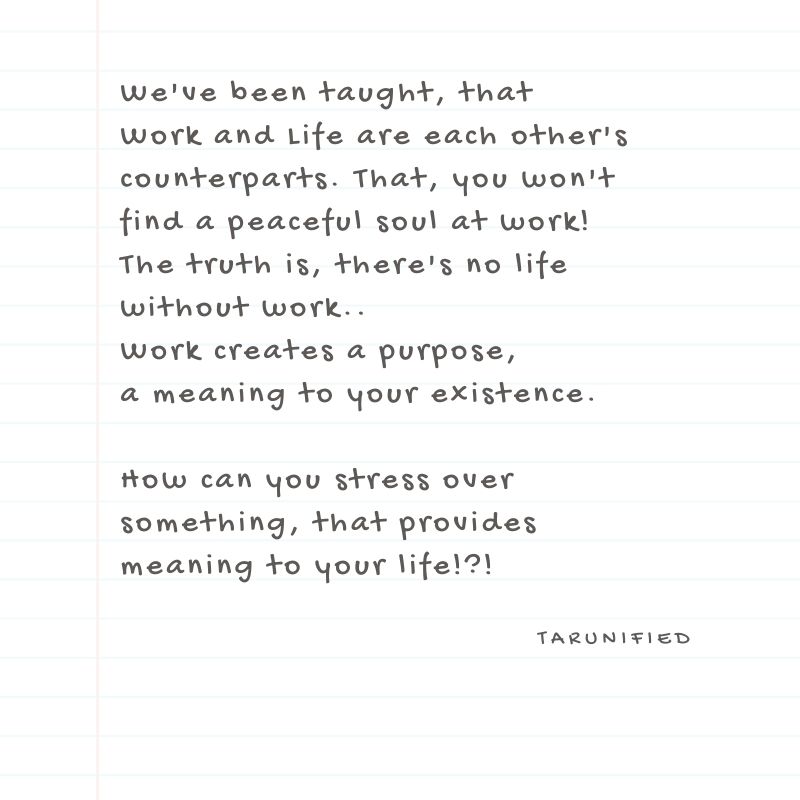 We've been taught, that
Work and Life are each other's
counterparts. That, you won't
find a peaceful soul at work!
The truth is, there's no life
without work..
Work creates a purpose,
a meaning to your existence.
How can you stress over
something, that provides
meaning to your life!?!
TARUNIFIED